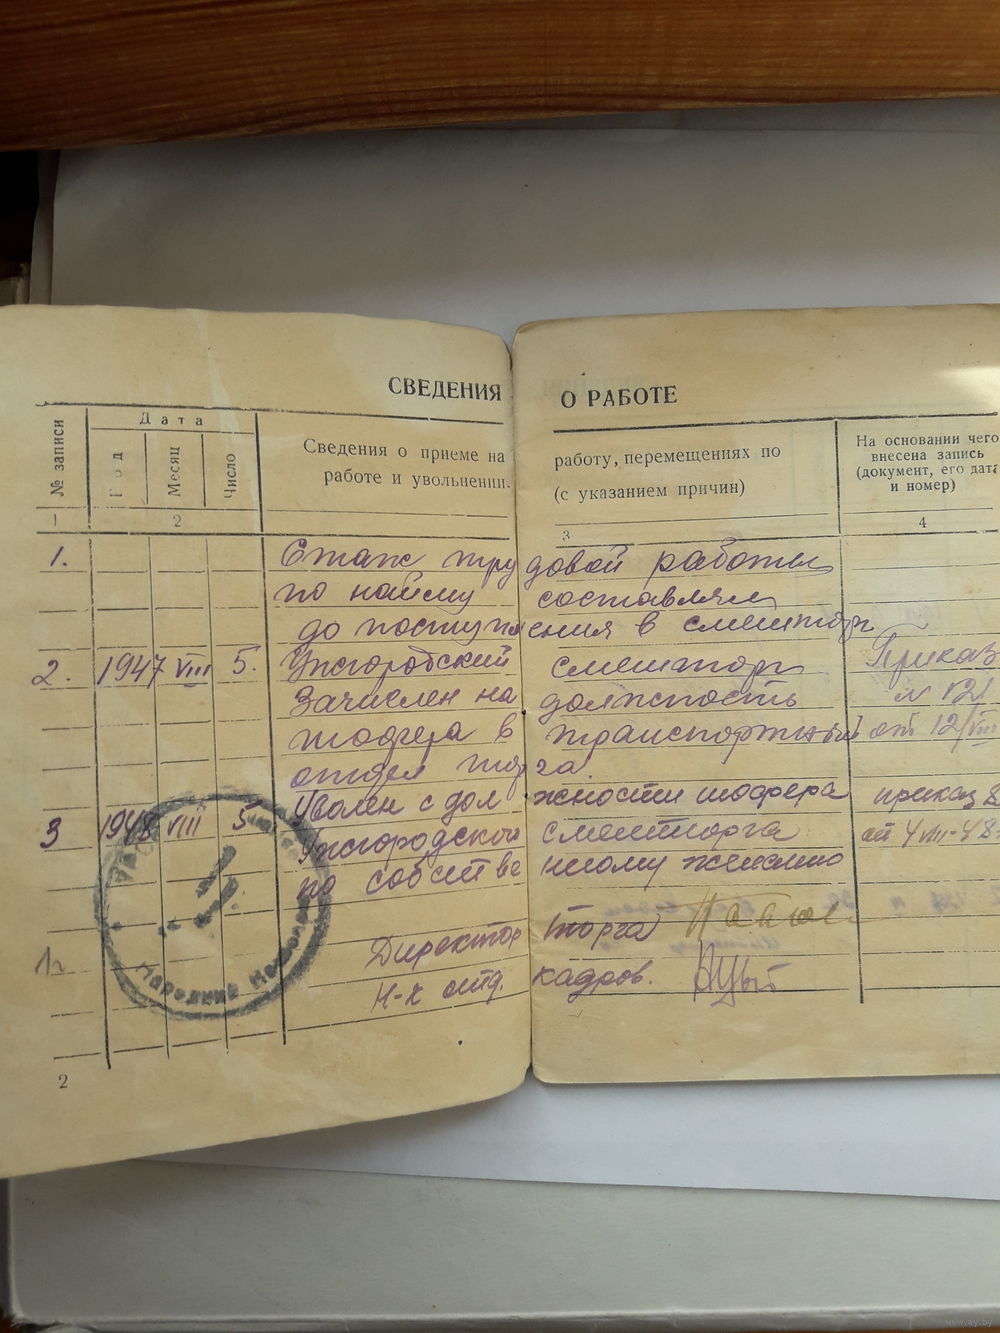 СВЕДЕНИЯ О РАБОТЕ
№ записи
Дата
Год
Месяц
Число
Сведения о приеме на работу, перемещениях по
работе и увольнении. (с указанием причин)
На основании чего
внесена запись
(документ, его дата
и номер)
1 2 3 4
1. Стаж трудовой работы
по найму составлял
до поступления в смешторг
2. 1947 VIII 5. Ужгородский смешторг Приказ
Зачислен на должность № 121
шофера в транспортный от 12/VIII
отдел торга.
Уволен с должности шофера приказ 8
3 1948 VIII 5 Ужгородского смешторга от 4 VIII-48
по собственному желанию
Директор торга
Н-к отд. кадров.
Народний
2
www.ay.by